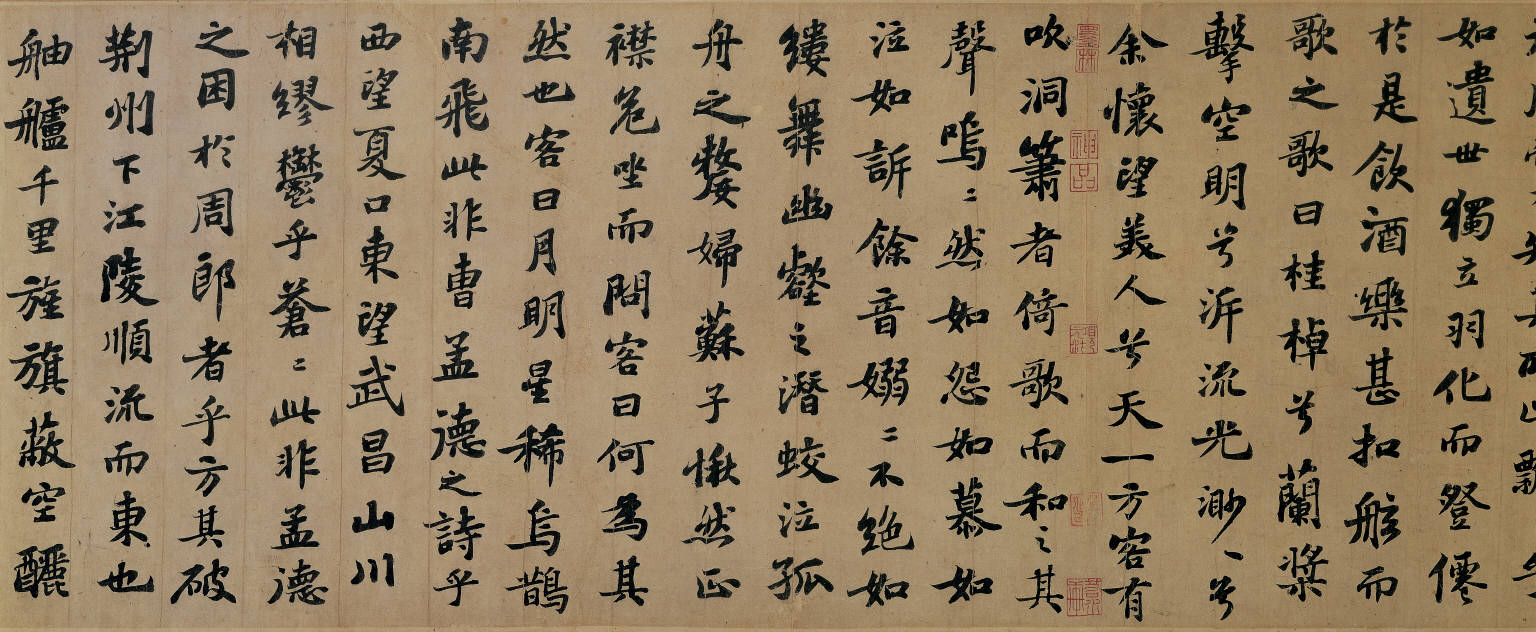 如遺世獨立羽化而登僊
於是飲酒樂甚扣舷而
歌之歌曰桂棹兮蘭槳
擊空明兮泝流光渺〻兮
余懷望美人兮天一方客有
吹洞簫者倚歌而和之其
聲嗚〻然如怨如慕如
泣如訴餘音嫋〻不絕如
縷舞幽壑之潛蛟泣孤
舟之嫠婦蘇子愀然正
襟危坐而問客曰何為其
然也客曰月明星稀烏鵲
南飛此非曹孟德之詩乎
西望夏口東望武昌山川
相繆鬱乎蒼〻此非孟德
之困於周郎者乎方其破
荊州下江陵順流而東也
舳艫千里旌旗蔽空釃